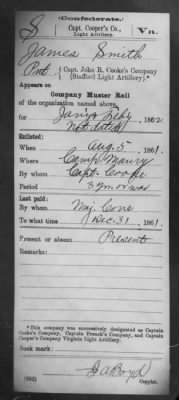 (Confederate.)
S Capt. Cooper's Co., Light Artillery. Va.
James Smith
Pvt., Capt. John R. Cooke's Company (Stafford Light Artillery).*
Appears on
Company Muster Roll
of the organization named above,
for Jan'y & Feby, 1862
Not dated
Enlisted:
When Aug. 5, 1861.
Where Camp Maury
By whom Capt. Cooke
Period 3 yrs. or war
Last paid:
By whom Maj. Cone
To what time Dec. 31, 1861.
Present or absent Present
Remarks:
*This company was successively designated as Captain Cooke's Company, Captain French's Company, and Captain Cooper's Company Virginia Light Artillery.
Book mark:
(652)
Copyist.